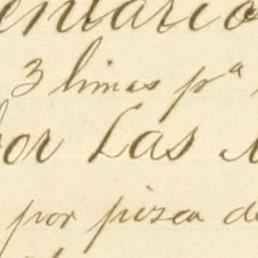 entario
3 limas pª
por Las
por pisca de